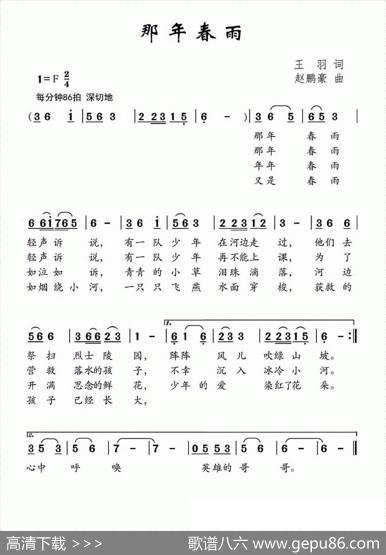 那年春雨
王羽 词
1=F 2/4
赵鹏豪 曲
每分钟86拍 深切地
(3 6 i | 5 6 3 | 2 2 3 1 5 | 6 -) | 3 6 5 | 6 5 3 |
那年 春雨
那年 春雨
年年 春雨
又是 春雨
6 6 i 7 6 5 | 6 - | 3 6 i | 5 6 3 | 2 2 3 1 2 | 3 - |
轻声诉 说, 有一 队 少年 在河边走 过, 他们 去
轻声诉 说, 有一 队 少年 再不能上 课, 为 了
如泣如 诉, 青青 的 小草 泪珠 滴落, 河 边
如烟绕 小河, 一只 只 飞燕 水面 穿梭, 获救 的
祭扫 烈士 陵 园, 阵阵 风 儿 吹绿 山 坡。
营救 落水的孩 子, 不幸 沉 入 冰冷 小 河。
开满 思念的鲜 花, 少年 的 爱 染红了 花 朵。
孩子 已经 长 大,
心中 呼 唤 英雄的 哥 哥。
高清下载 >>>
歌谱八六 www.gepu86.com